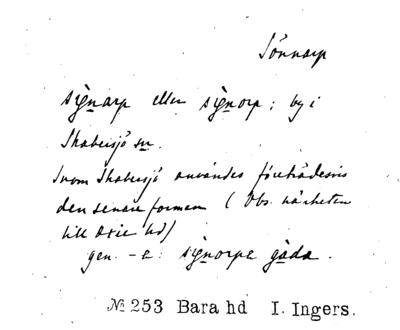 Sönnarp
sìg̲narp eller sìg̲norp; by i
Skabersjö sn.
Inom Skabersjö användes företrädesvis
den senare formen (Obs. närheten
till Oxie hd)
gen. -a: sìg̲norpa gàda.
№ 253 Bara hd I. Ingers.